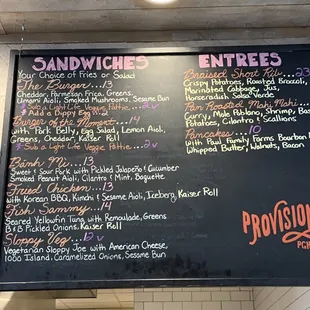 SANDWICHES
Your Choice of Fries or Salad
The Burger...13
Cheddar, Parmesan Frico, Greens,
Umami Aioli, Smoked Mushrooms, Sesame Bun
* Sub a Light Life Veggie Pattie...2v
* Add a Duppy Egg...2
Burger of the Moment...14
with Pork Belly, Egg Salad, Lemon Aioli,
Greens, Cheddar, Kaiser Roll
* Sub a Light Life Veggie Pattie...2v
Bánh Mi...13
Sweet & Sour Pork with Pickled Jalapeño & Cucumber
Smoked Peanut Aioli, Cilantro & Mint, Baguette
Fried Chicken...13
with Korean BBQ, Kimchi & Sesame Aioli, Iceberg, Kaiser Roll
Fish Sammy...14
Seared Yellowfin Tuna with Remoulade, Greens
B&B Pickled Onions, Kaiser Roll
Sloppy Veg...12 v
Vegetarian Sloppy Joe with American Cheese,
1000 Island, Caramelized Onions, Sesame Bun
ENTREES
Braised Short Rib...23
Crispy Potatoes, Roasted Broccoli,
Marinated Cabbage, Jus,
Horseradish Salsa Verde
Pan Roasted Mahi Mahi
Curry, Mole Poblano, Shrimp,
Potatoes, Cilantro & Scallions
Pancakes...10
with Paul Family Farms Bourbon
Whipped Butter, Walnuts, Bacon
PROVISION
PGH